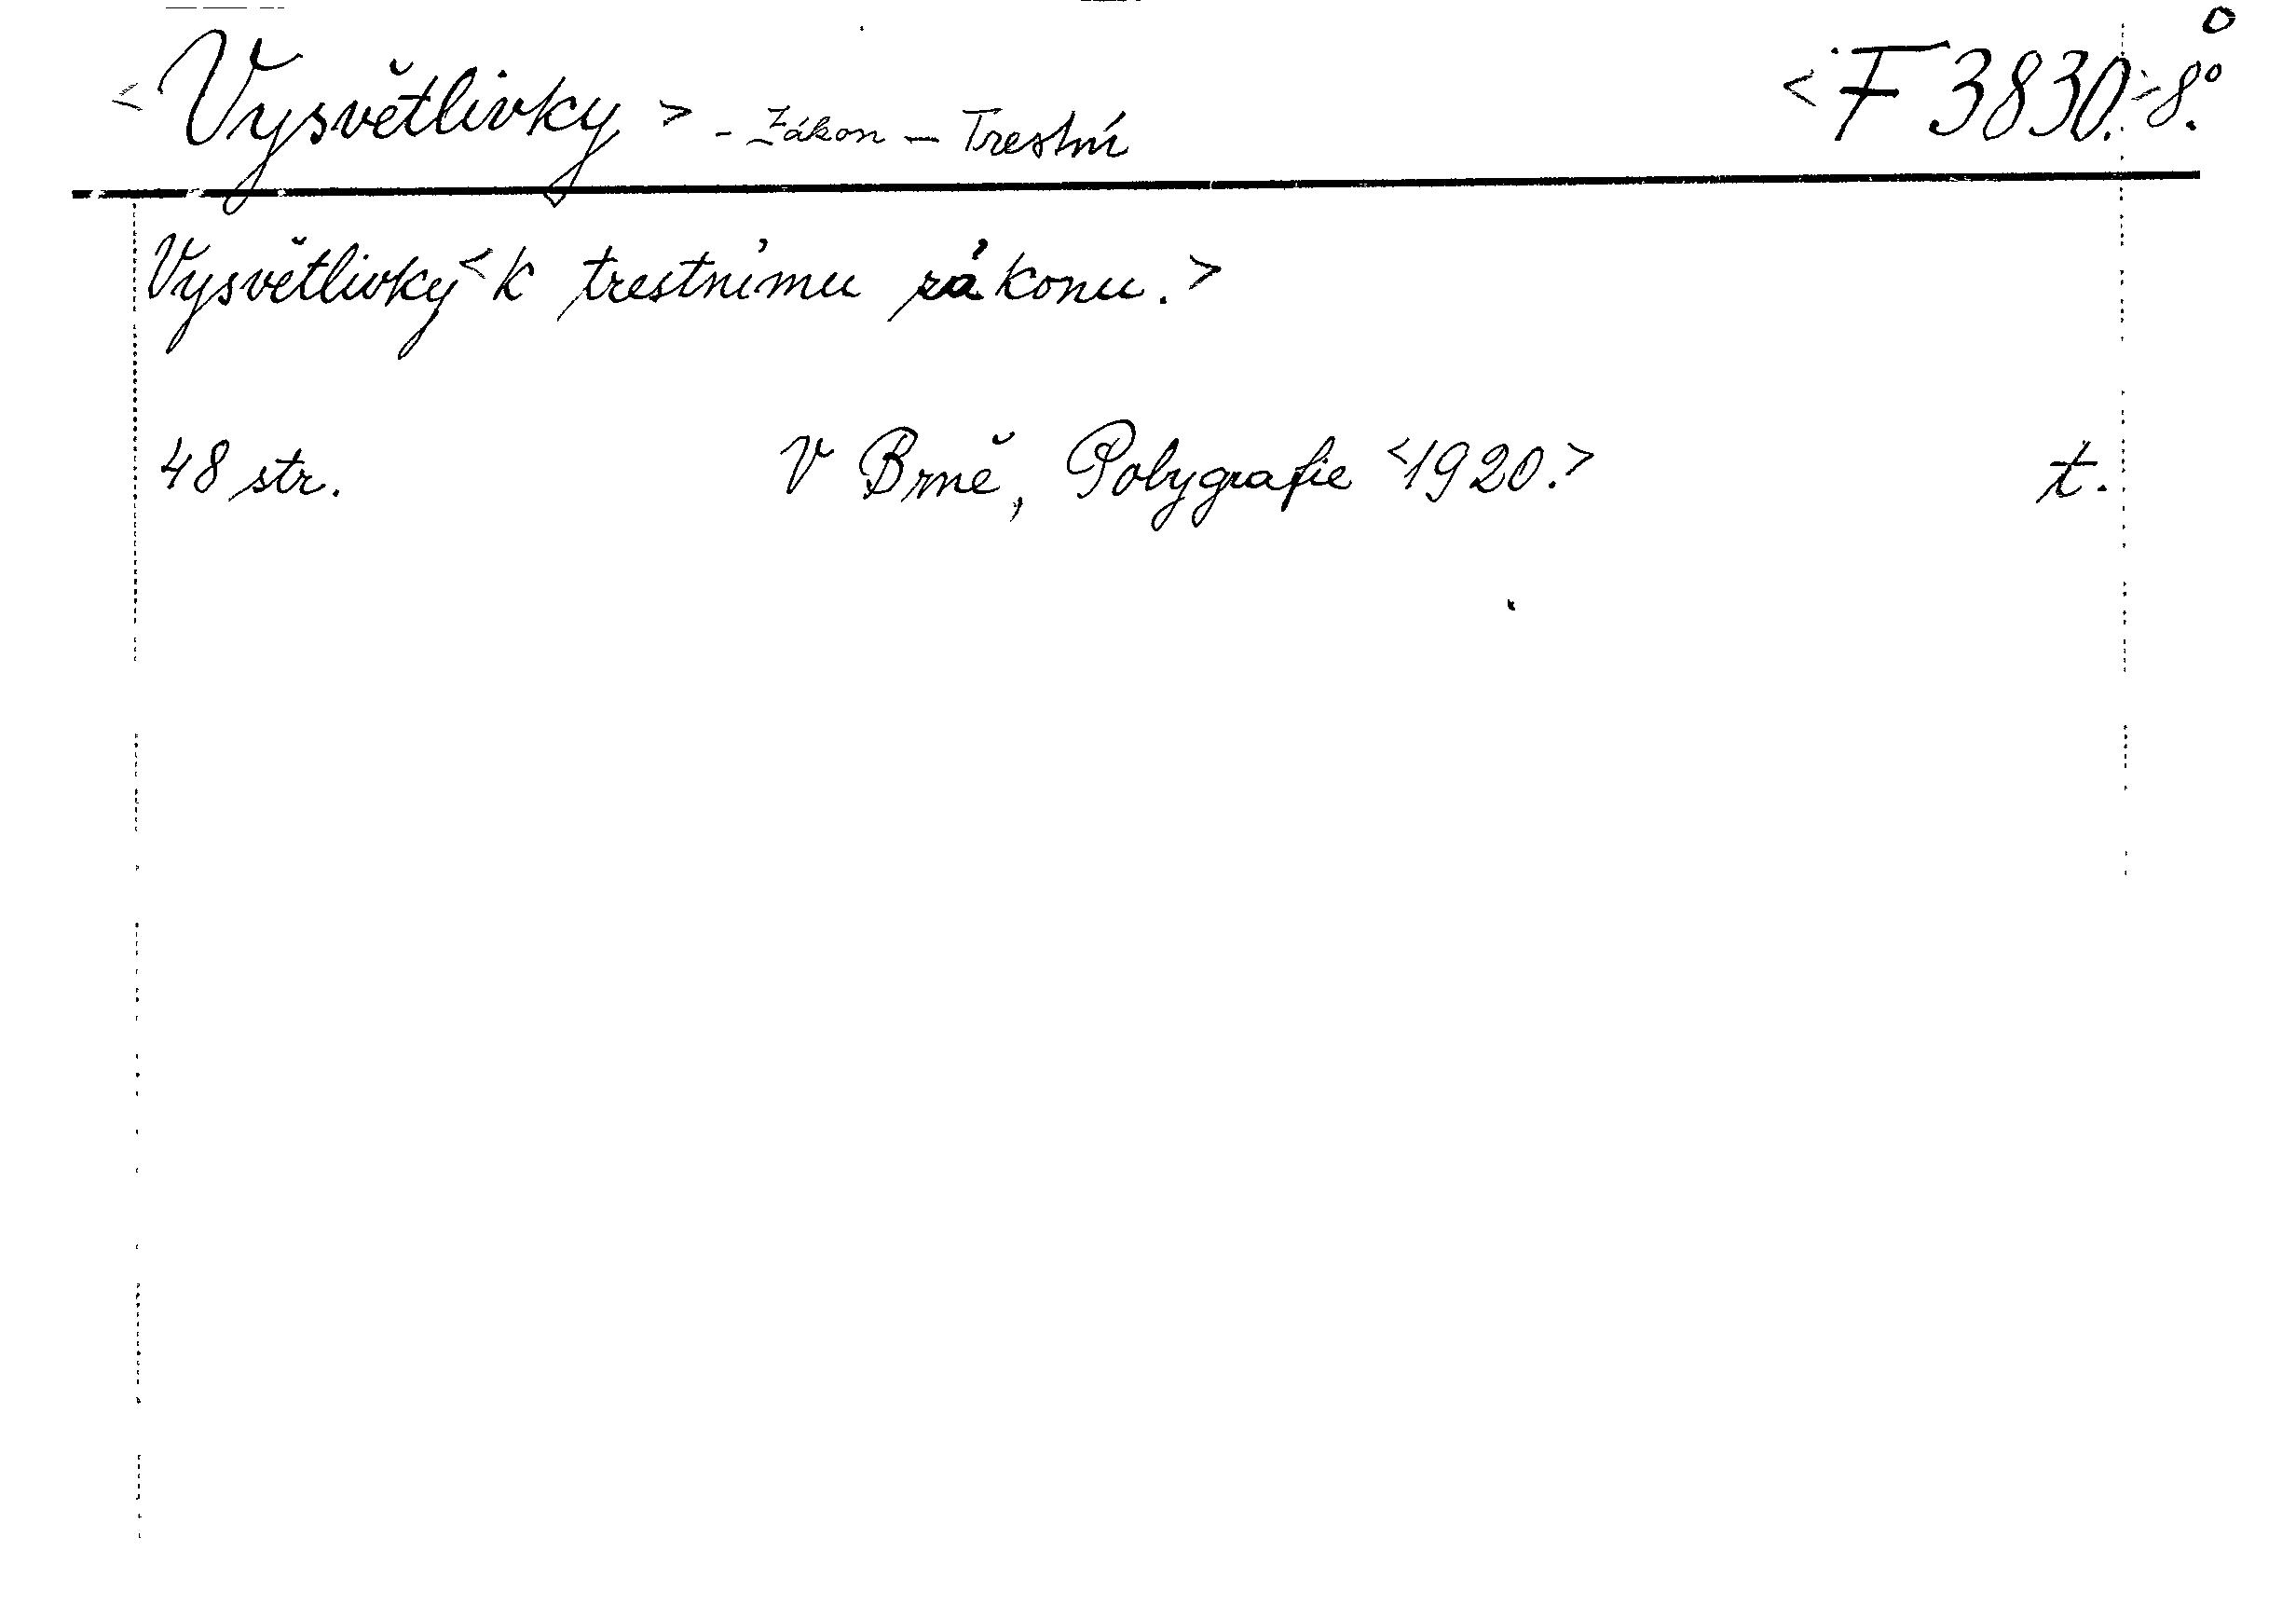 <Vysvětlivky> - Zákon – Trestní <F 3830.> 8.º
Vysvětlivky <k trestnímu zákonu.>
48 str. V Brně, Polygrafie <1920.> t.